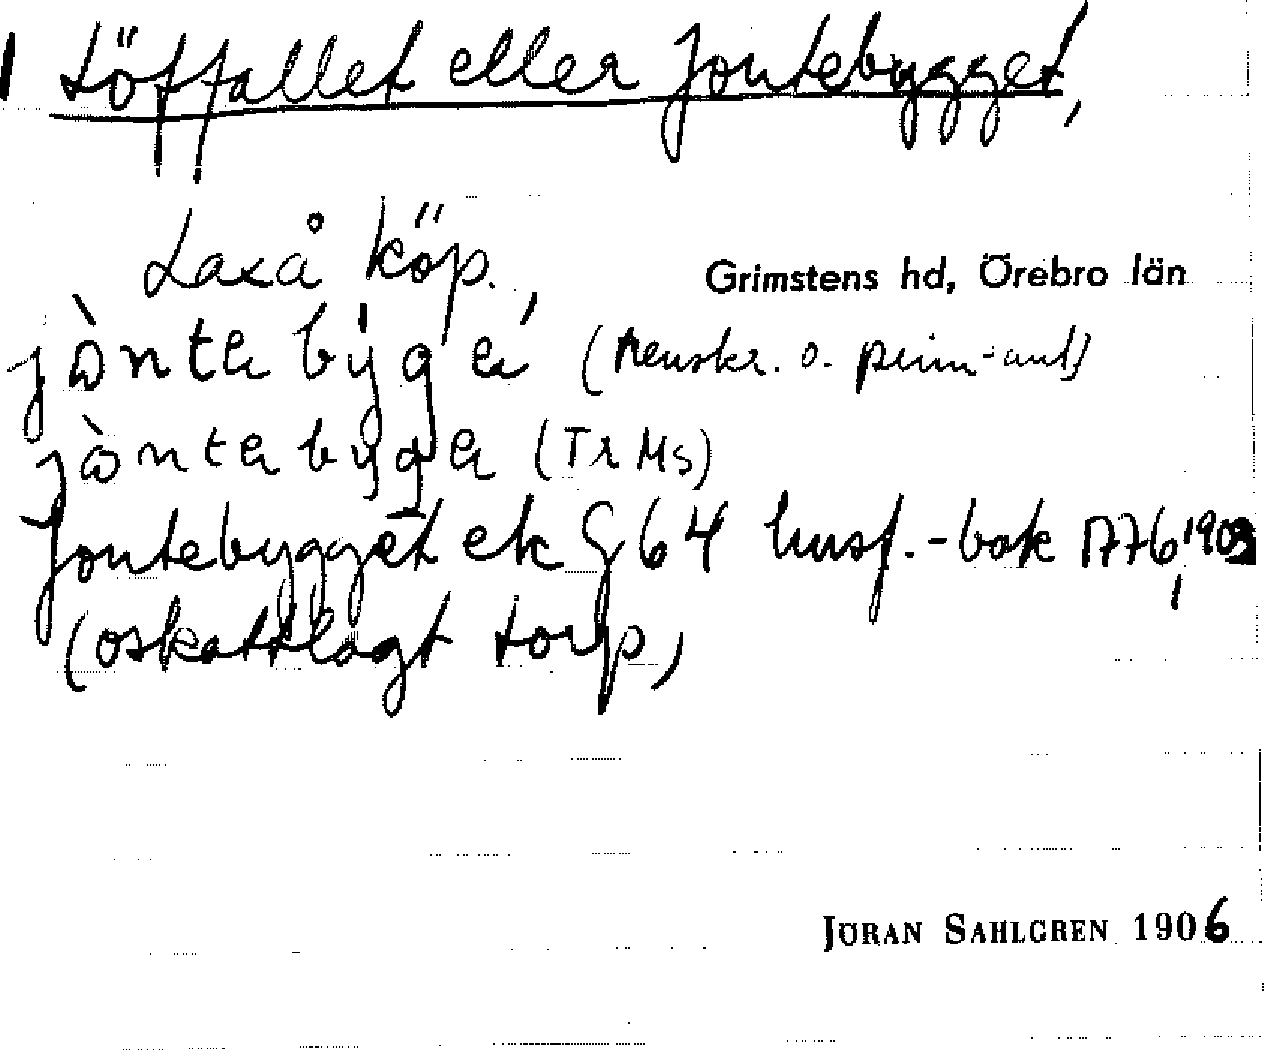 Löffallet eller Jontebygget,
Laxå köp., Grimstens hd, Örebro län
jòntebýgé (Renskr. o. prim-ant)
jòntebyge (TrMs)
Jontebygget ek G64 husf.-bok 1776, 1903
(oskattlagt torp)
JÖRAN SAHLGREN 1906